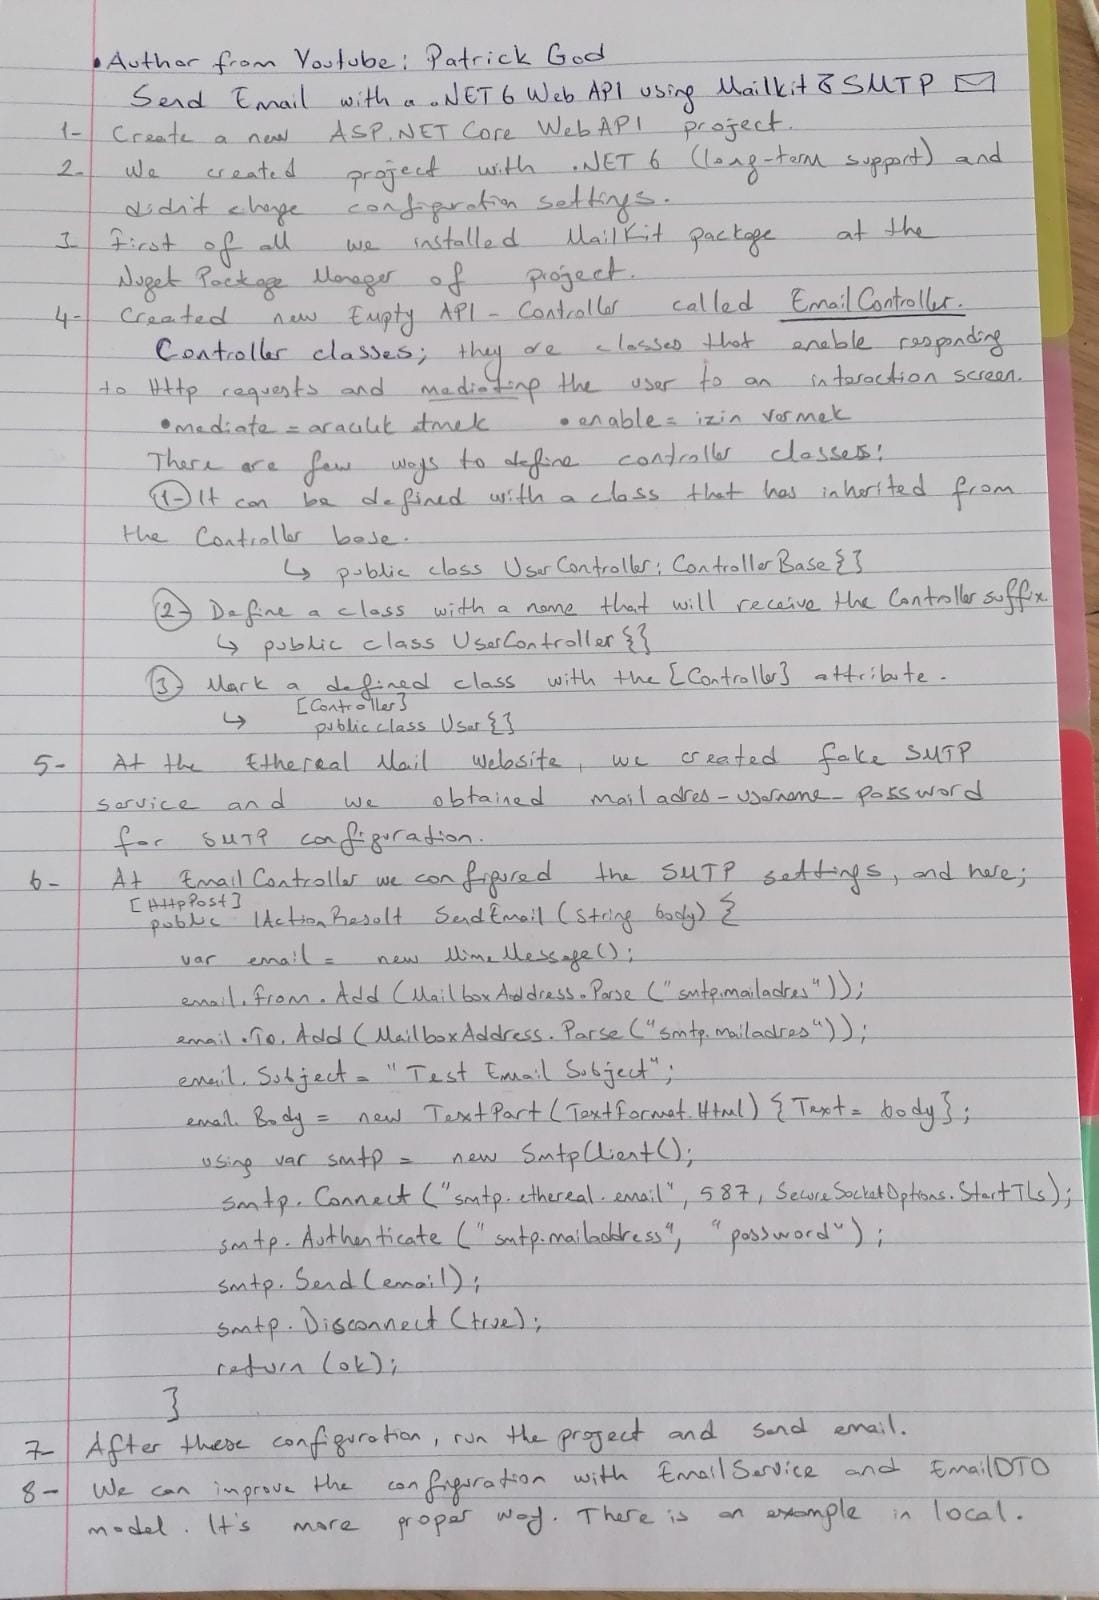 • Author from Youtube: Patrick God
Send Email with a .NET 6 Web API using Mailkit & SMTP
1- Create a new ASP.NET Core WebAPI project.
2- We created project with .NET 6 (long-term support) and
didn't change configuration settings.
3- First of all we installed MailKit package at the
Nuget Package Manager of project.
4- Created new Empty API - Controller called EmailController.
Controller classes; they are classes that enable responding
to Http requests and mediating the user to an interaction screen.
• mediate = aracılık etmek • enable = izin vermek
There are few ways to define controller classes:
1- It can be defined with a class that has inherited from
the Controller base.
↳ public class UserController: ControllerBase {}
2- Define a class with a name that will receive the Controller suffix.
↳ public class UserController {}
3- Mark a defined class with the [Controller] attribute.
[Controller]
↳ public class User {}
5- At the Ethereal Mail website, we created fake SMTP
service and we obtained mail adres - username - password
for SMTP configuration.
6- At EmailController we configured the SMTP settings, and here;
[HttpPost]
public IActionResult SendEmail (String body) {
var email = new MimeMessage();
email.from.Add (MailboxAddress.Parse ("smtp.mailadres"));
email.To.Add (MailboxAddress.Parse ("smtp.mailadres"));
email.Subject = "Test Email Subject";
email.Body = new TextPart (TextFormat.Html) { Text = body };
using var smtp = new SmtpClient();
smtp.Connect ("smtp.ethereal.email", 587, SecureSocketOptions.StartTls);
smtp.Authenticate ("smtp.mailaddress", "password");
smtp.Send (email);
smtp.Disconnect (true);
return (ok);
}
7- After these configuration, run the project and send email.
8- We can improve the configuration with EmailService and EmailDTO
model. It's more proper way. There is an example in local.